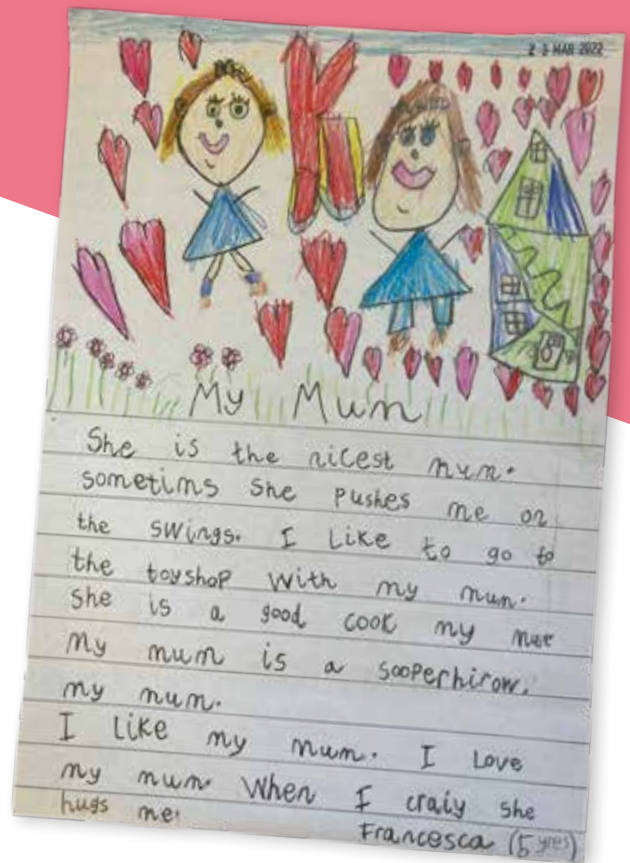 23 MAR 2022
K
My Mum
She is the nicest mum.
sometims She pushes me on
the swings. I Like to go to
the toyshop with my mum.
She is a good cook my mum
My mum is a sooperhirow.
my mum.
I Like my mum. I Love
my mum. When I craiy she
hugs me.
Francesca (5 yres)